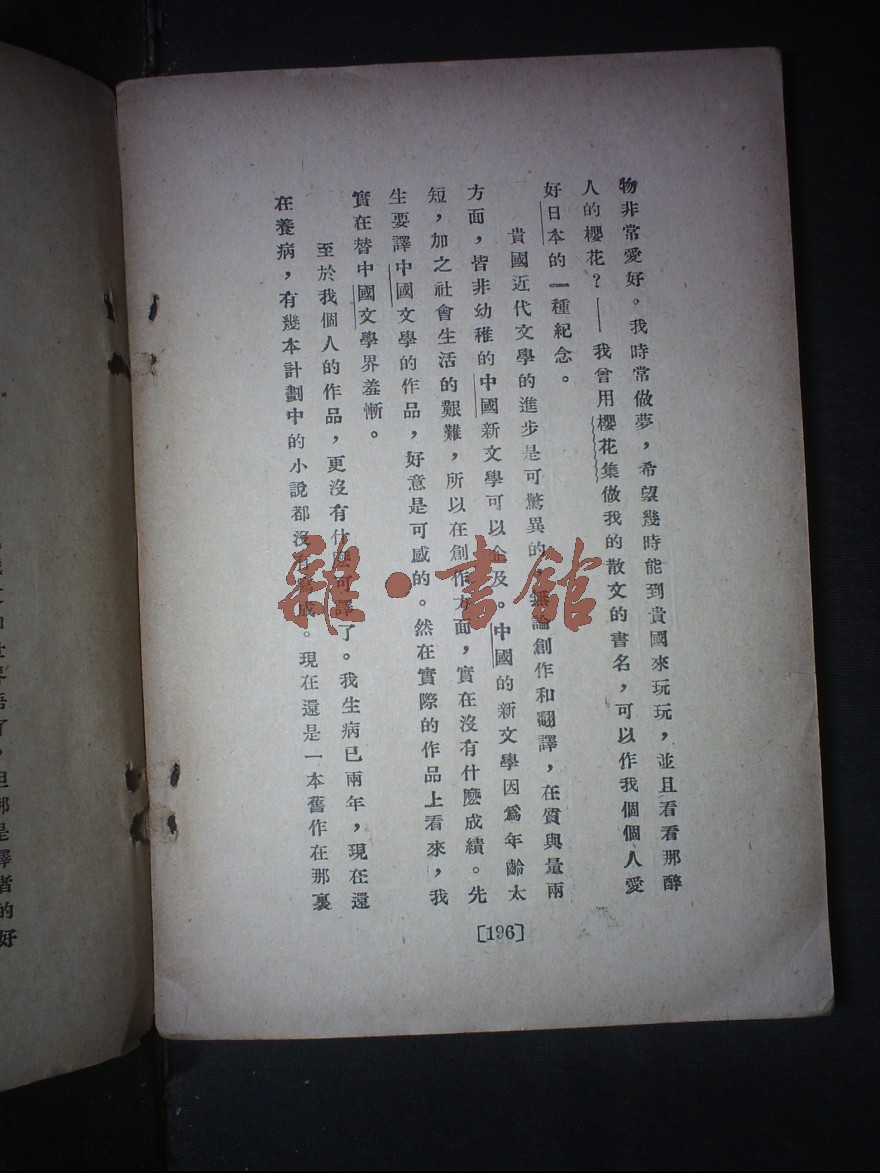 物非常愛好。我時常做夢，希望幾時能到貴國來玩玩，並且看看那醉
人的櫻花？——我曾用櫻花集做我的散文的書名，可以作我個個人愛
好日本的一種紀念。
貴國近代文學的進步是可驚異的，無論創作和翻譯，在質與量兩
方面，皆非幼稚的中國新文學可以企及。中國的新文學因爲年齡太
短，加之社會生活的艱難，所以在創作方面，實在沒有什麼成績。先
生要譯中國文學的作品，好意是可感的。然在實際的作品上看來，我
實在替中國文學界羞慚。
至於我個人的作品，更沒有什麼可譯了。我生病已兩年，現在還
在養病，有幾本計劃中的小說都沒有成。現在還是一本舊作在那裏
[196]
雜·書館
但那是譯者的好